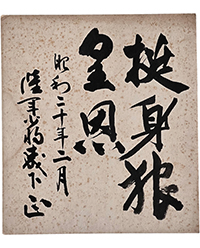 挺身報
皇恩
昭和二十年二月
陸軍